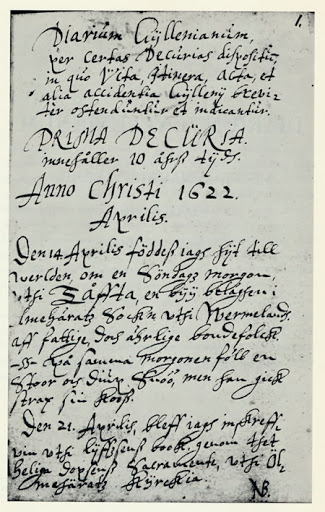 1.
Diarium Gyllenianum,
per Certas Decurias dispositū,
in quo Vita, Itinera, Acta, et
alia accidentia Gyllenij brevi-
ter ostenduntur et indicantur.
PRIMA DECURIA.
innehåller 10 åhrs tijds.
Anno Christi 1622.
Aprilis.
Den 14 Aprilis föddes iagh hijt till
werlden, om en Söndags morgon,
uthi Tåffta, en bÿÿ belägen i
Ölmehäratz Sockn uthi Wermeland,
aff fattige, doch ährlige bondefolck.
på samma morgonen föll en
Stoor och diup Snöö, men han gick
strax sin koos.
Den 21. Aprilis, bleff iagh inskreffi-
vin uthi lijffzens book, genom thet
helga dopsens Sacramente, uthi Öl-
mehäratz Kÿrckia.
NB.